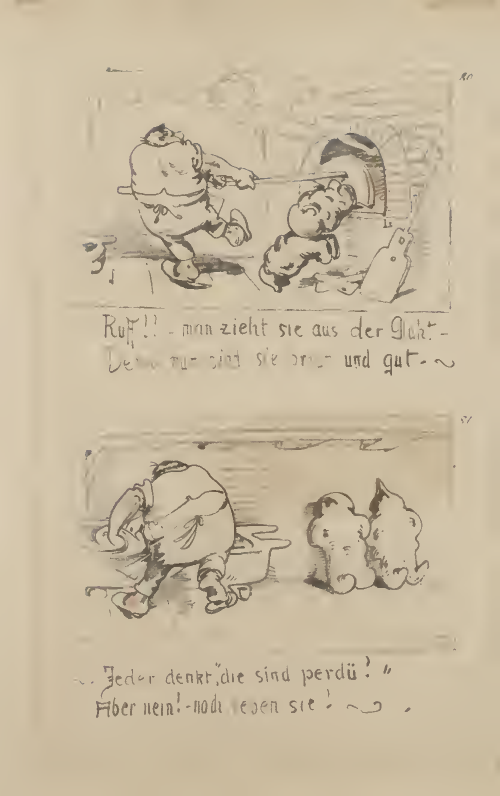 Ruff!! - man zieht sie aus der Gluht -
sind sie und gut -
Jeder denkt, "die sind perdü! "
Aber nein! - noch leben sie!